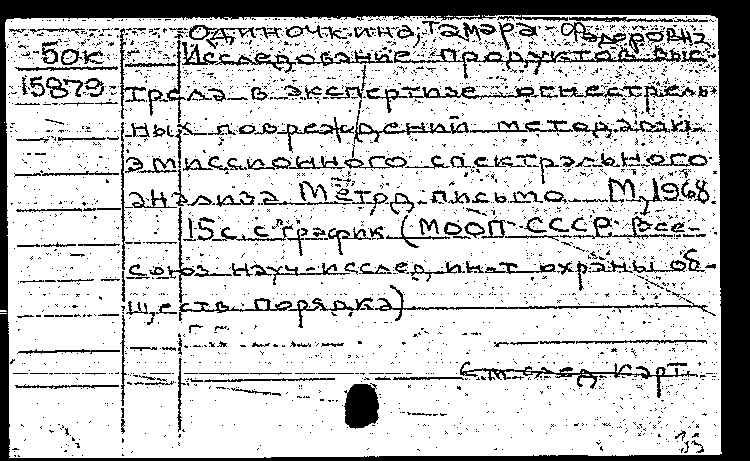 Одиночкина, Тамара Федоровна
50к Исследование продуктов выс-
15879 трела в экспертизе огнестрель-
ных повреждений методами
эмиссионного спектрального
анализа Метод. письмо М, 1968
15 с. с график (МООП СССР. Все-
союз науч-исслед ин-т охраны об-
ществ порядка)
См след карт.
33